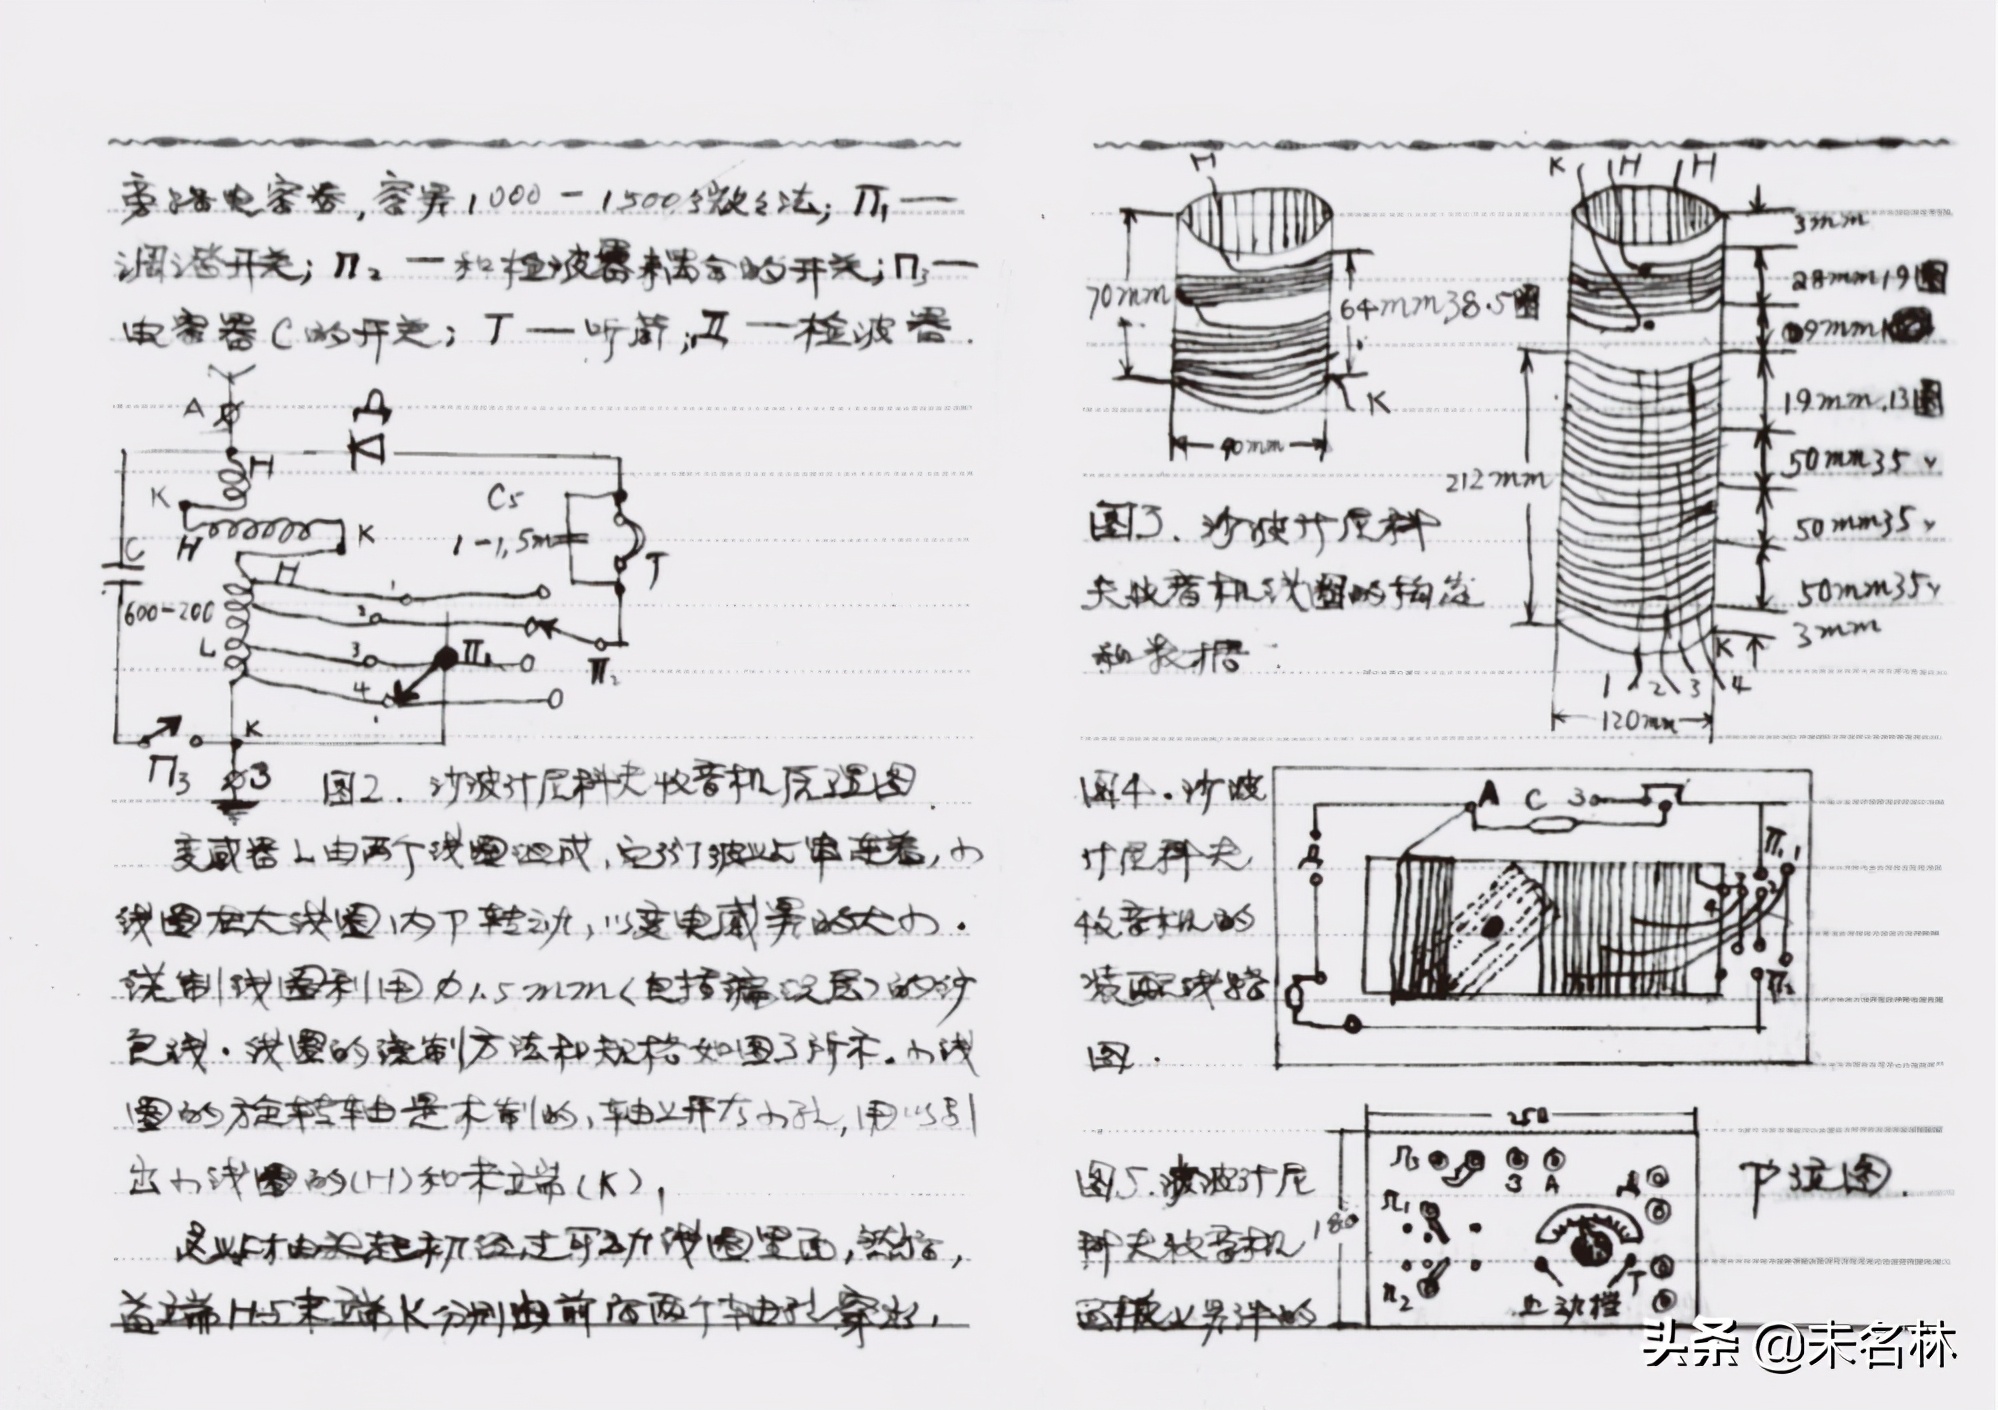 旁路电容器，容量1000－1500微微法；П₁—
调谐开关；П₂—和检波器耦合的开关；П₃—
电容器C的开关；T—听筒；Д—检波器．
A
Д
H
K
H
K
H
C₅
1－1,5m
T
C
600－200
L
1
2
3
4
П₁
П₂
K
П₃
З
图2．沙波什尼科夫收音机原理图
变感器L由两个线圈组成，它们彼此串连着，小
线圈在大线圈内下转动，以变电感量的大小．
绕制线圈利用φ1.5mm（包括绝层）的沙
包线．线圈的绕制方法和规格如图3所示．小线
圈的旋转轴是木制的，轴上开有小孔，用以引
出小线圈的(H)和末端(K)，
线圈里面，然后，
首端H与末端K分别由前后两个轴孔穿出，
H
70mm
64mm38.5圈
K
90mm
K H H
3mm
28mm19圈
9mm
19mm.13圈
50mm35〃
50mm35〃
50mm35〃
3mm
212mm
K
1 2 3 4
120mm
图3．沙波什尼科
夫收音机线圈的构造
和数据．
图4．沙波
什尼科夫
收音机的
装配线路
图．
A C З
Д
П₁
1
2
3
4
П₂
图5．波波什尼
科夫收音机
面板上另件的
下位图．
250
180
П₃
З A
Д
П₁
П₂
T
止动档
头条 @未名林